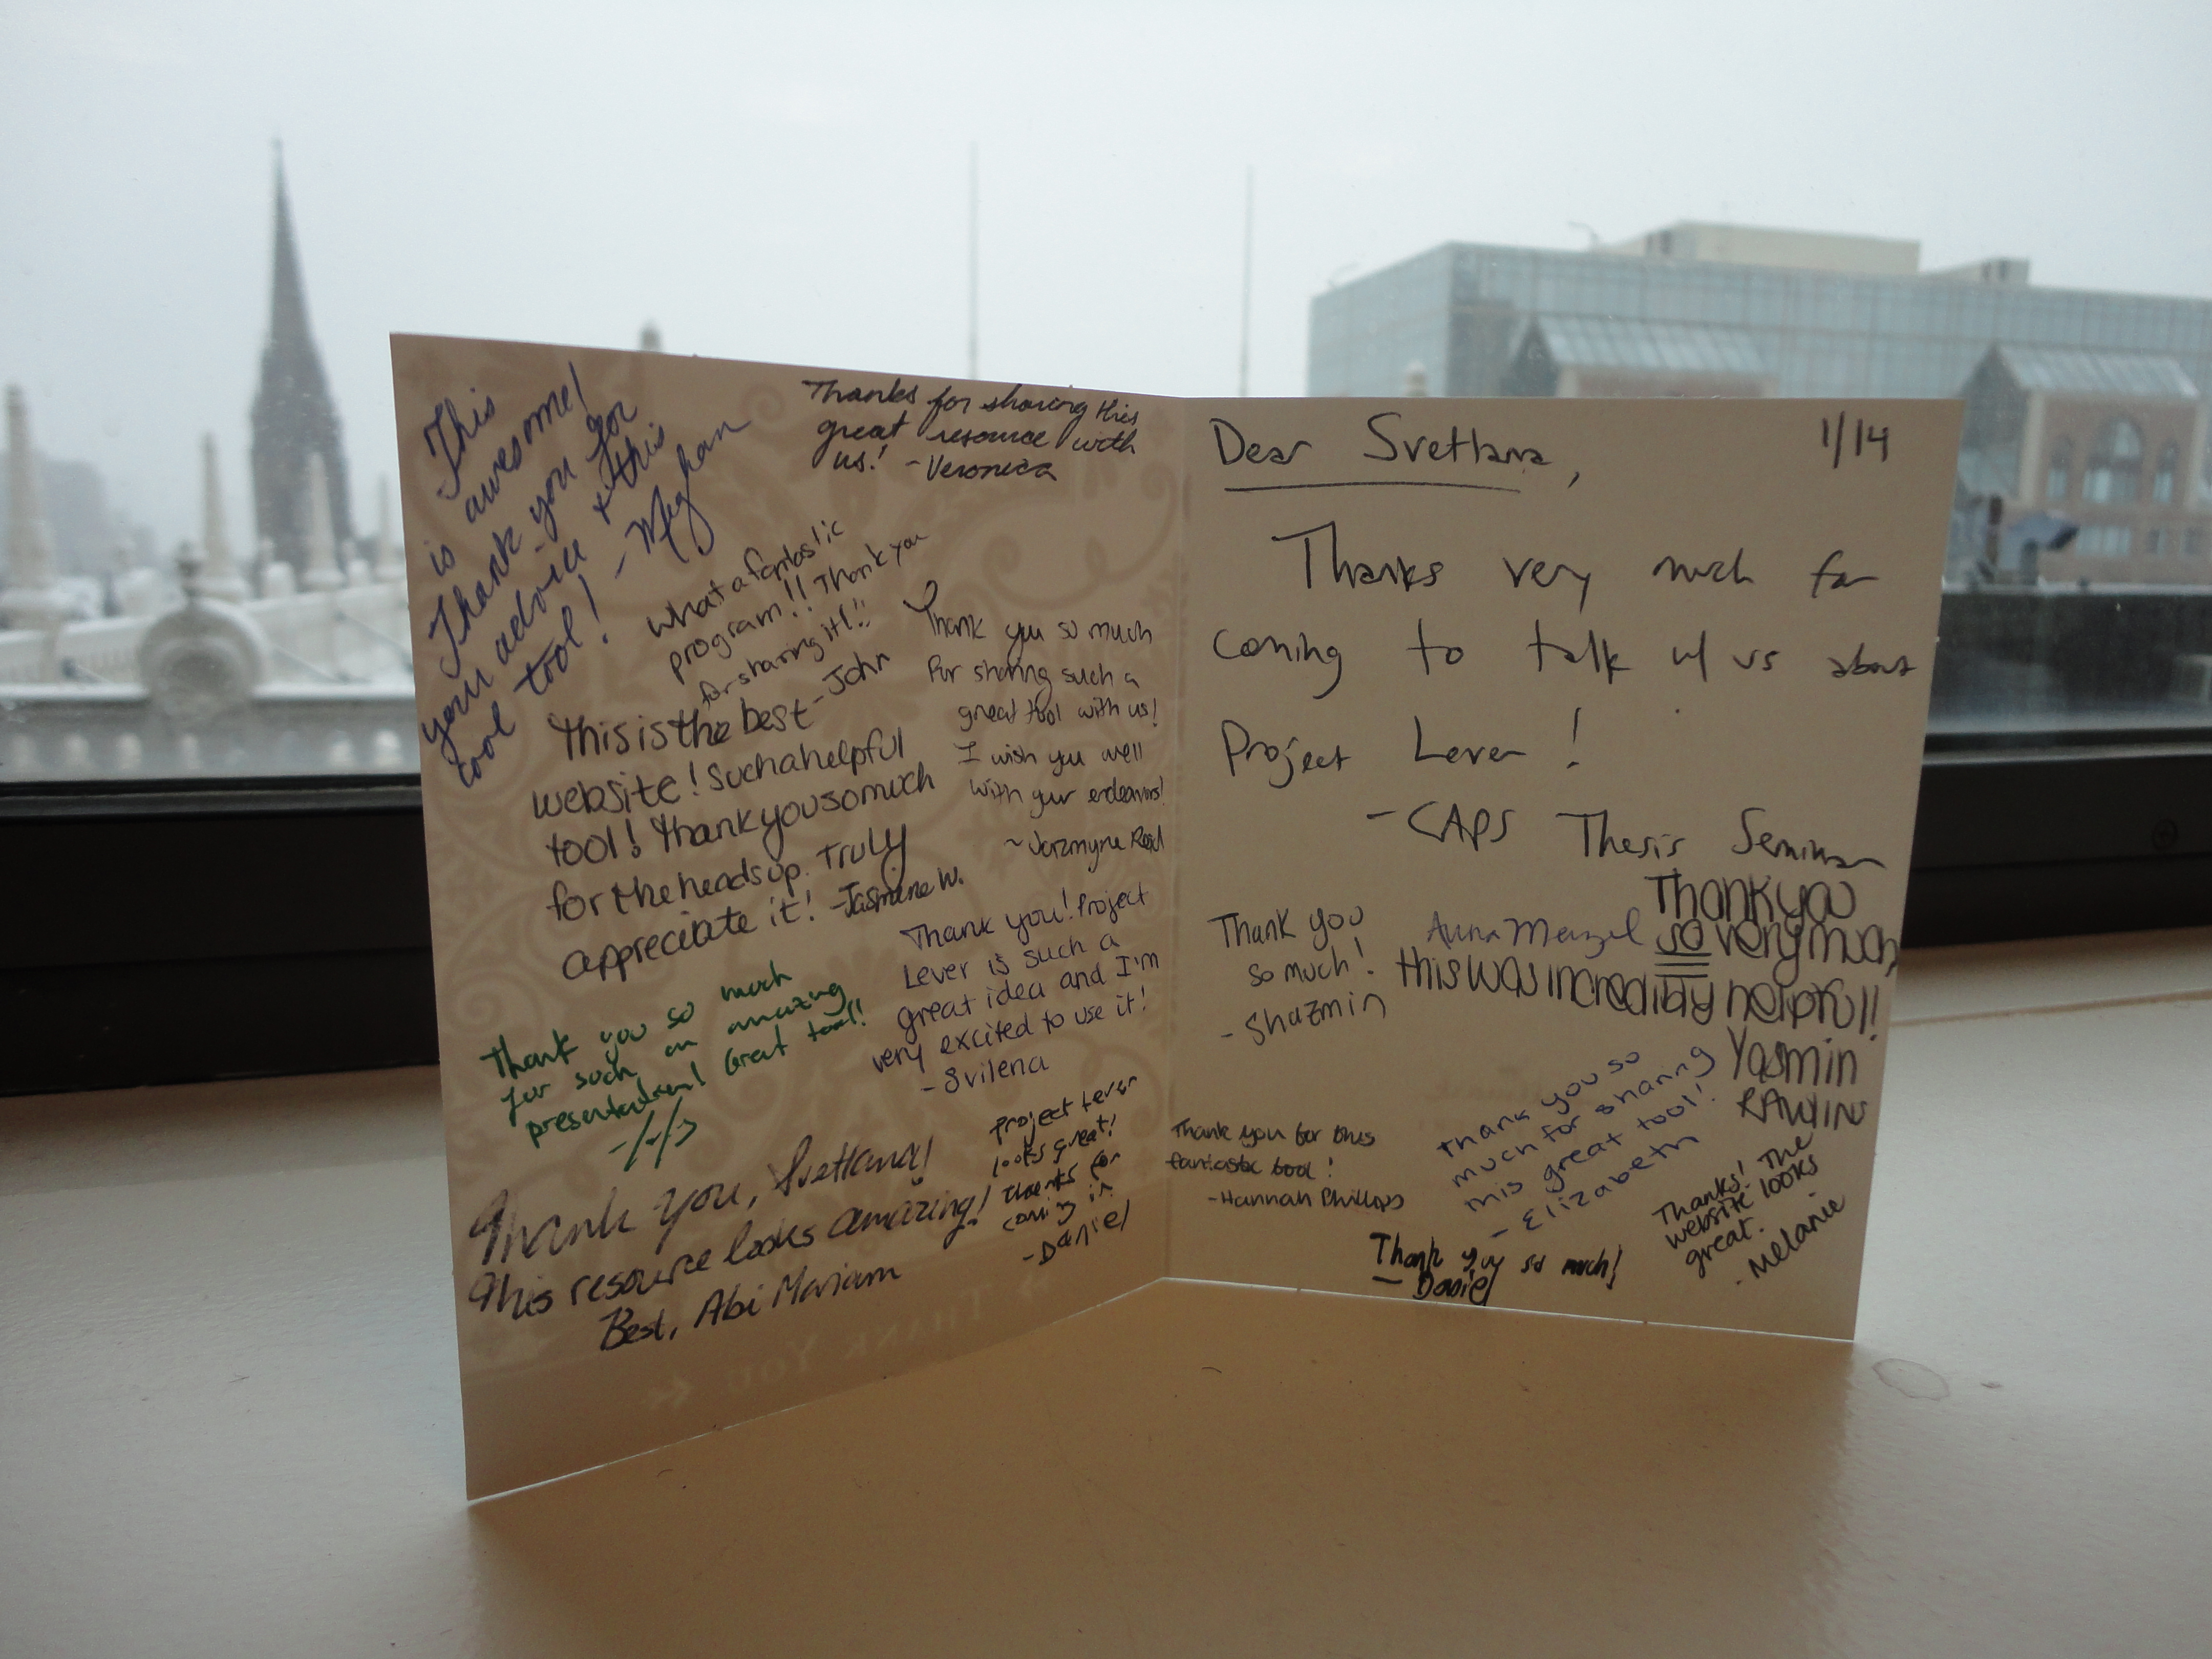 This
is awesome!
Thank-you for
your advice & this
cool tool! - Meghan
Thanks for sharing this
great resource with
us! - Veronica
What a fantastic
program!! Thank you
for sharing it!!
- John
Thank you so much
for sharing such a
great tool with us!
I wish you well
with your endeavors!
~ Jazmyne Reid
This is the best
website! Such a helpful
tool! Thank you so much
for the heads up. Truly
appreciate it! - Jasmine W.
Thank you! Project
Lever is such a
great idea and I'm
very excited to use it!
- Svilena
Thank you so much
for such an amazing
presentation! Great tool!
Thank you, Svetlana!
This resource looks amazing!
Best, Abi Mariam
Project Lever
looks great!
Thanks for
coming in
- Daniel
1/14
Dear Svetlana,
Thanks very much for
coming to talk w/ us about
Project Lever!
- CAPS Thesis Seminar
Thank you
so much!
- Shazmin
Anna Menzel
Thank you
so very much,
this was incredibly helpful!!
Yasmin
RAWLINS
Thank you for this
fantastic tool!
- Hannah Phillips
Thank you so
much for sharing
this great tool!
- Elizabeth
Thanks! The
website looks
great.
- Melanie
Thank you so much!
- Daniel
THANK YOU